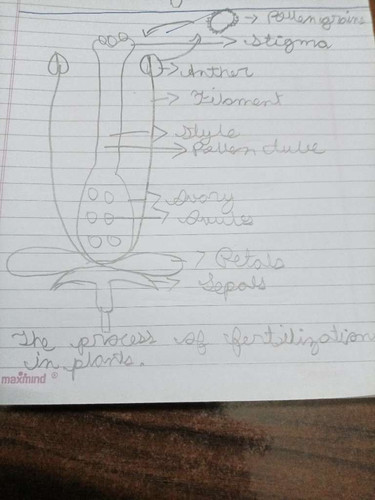 Pollen grains
Stigma
Anther
Filament
Style
Pollen tube
Ovary
Ovules
Petals
Sepals
The process of fertilization
in plants.
maxmind ®